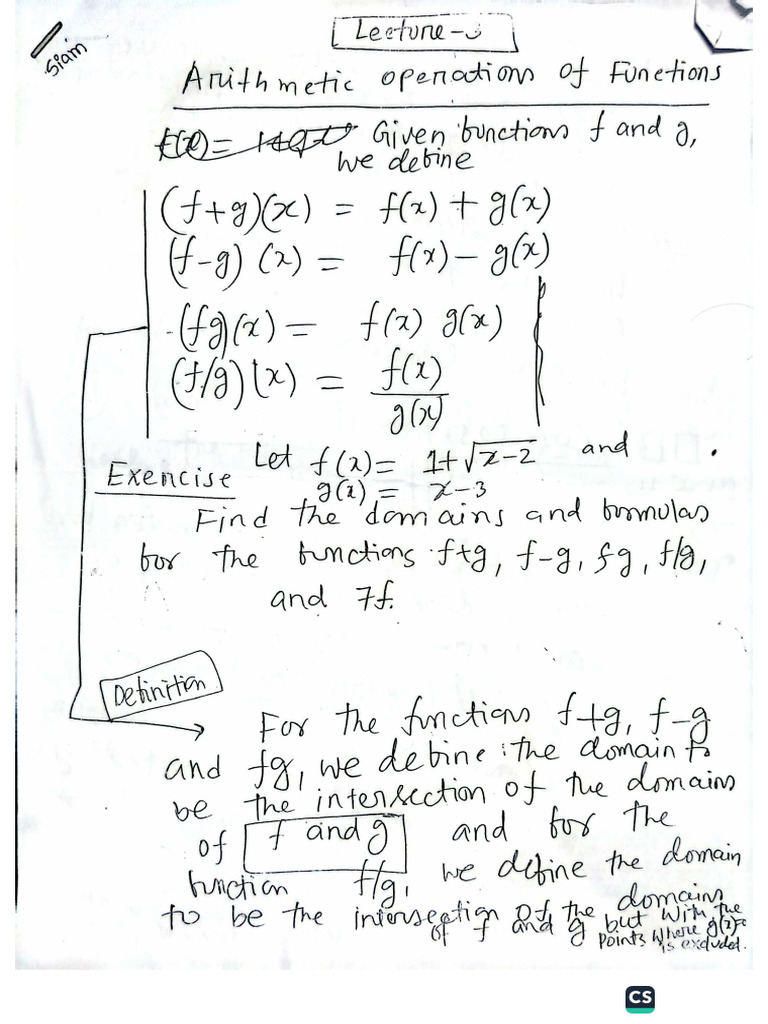 Siam
Lecture-3
Arithmetic operations of Functions
Given functions f and g,
we define
(f+g)(x) = f(x) + g(x)
(f-g) (x) = f(x) - g(x)
(fg(x) = f(x) g(x)
(f/g)(x) = f(x)/g(x)
Exercise Let f(x) = 1+√x-2 and
g(x) = x-3
Find the domains and formulas
for the functions f+g, f-g, fg, f/g,
and 7f.
Definition
For the functions f+g, f-g
and fg, we define the domain to
be the intersection of the domains
of f and g and for the
function f/g, we define the domain
to be the intersection of the domains
of f and g but with the
points where g(x)=
is excluded.
CS